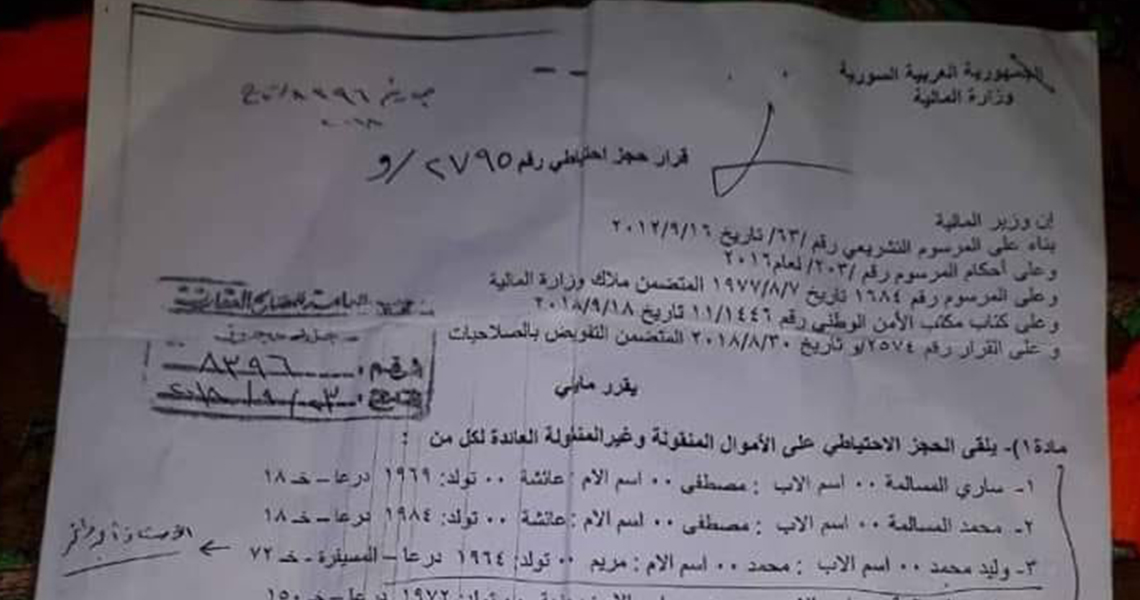 الجمهورية العربية السورية
وزارة المالية
٨٣٩٦
٢٠١٨
قرار حجز احتياطي رقم ٢٧٩٥ /و
إن وزير المالية
بناء على المرسوم التشريعي رقم /٦٣/ تاريخ ٢٠١٢/٩/١٦
وعلى أحكام المرسوم رقم /٢٠٣/ لعام ٢٠١٦
وعلى المرسوم رقم ١٦٨٤ تاريخ ١٩٧٧/٨/٧ المتضمن ملاك وزارة المالية
وعلى كتاب مكتب الأمن الوطني رقم ١١/١٤٤٦ تاريخ ٢٠١٨/٩/١٨
و على القرار رقم ٢٥٧٤/و تاريخ ٢٠١٨/٨/٣٠ المتضمن التفويض بالصلاحيات
العامة للمصالح العقارية
الرقم: ٨٣٩٦
يقرر مايلي
مادة١)- يلقى الحجز الاحتياطي على الأموال المنقولة وغيرالمنقولة العائدة لكل من :
١- ساري المسالمة ٠٠ اسم الاب : مصطفى ٠٠ اسم الام : عائشة ٠٠ تولد: ١٩٦٩ درعا – خـ ١٨
٢- محمد المسالمة ٠٠ اسم الاب : مصطفى ٠٠ اسم الام : عائشة ٠٠ تولد: ١٩٨٤ درعا – خـ ١٨
٣- وليد محمد ٠٠ اسم الاب : محمد ٠٠ اسم الام : مريم ٠٠ تولد: ١٩٦٤ درعا – المسيفرة - خـ ٧٢
تولد: ١٩٧٢ درعا – خـ ١٥٠